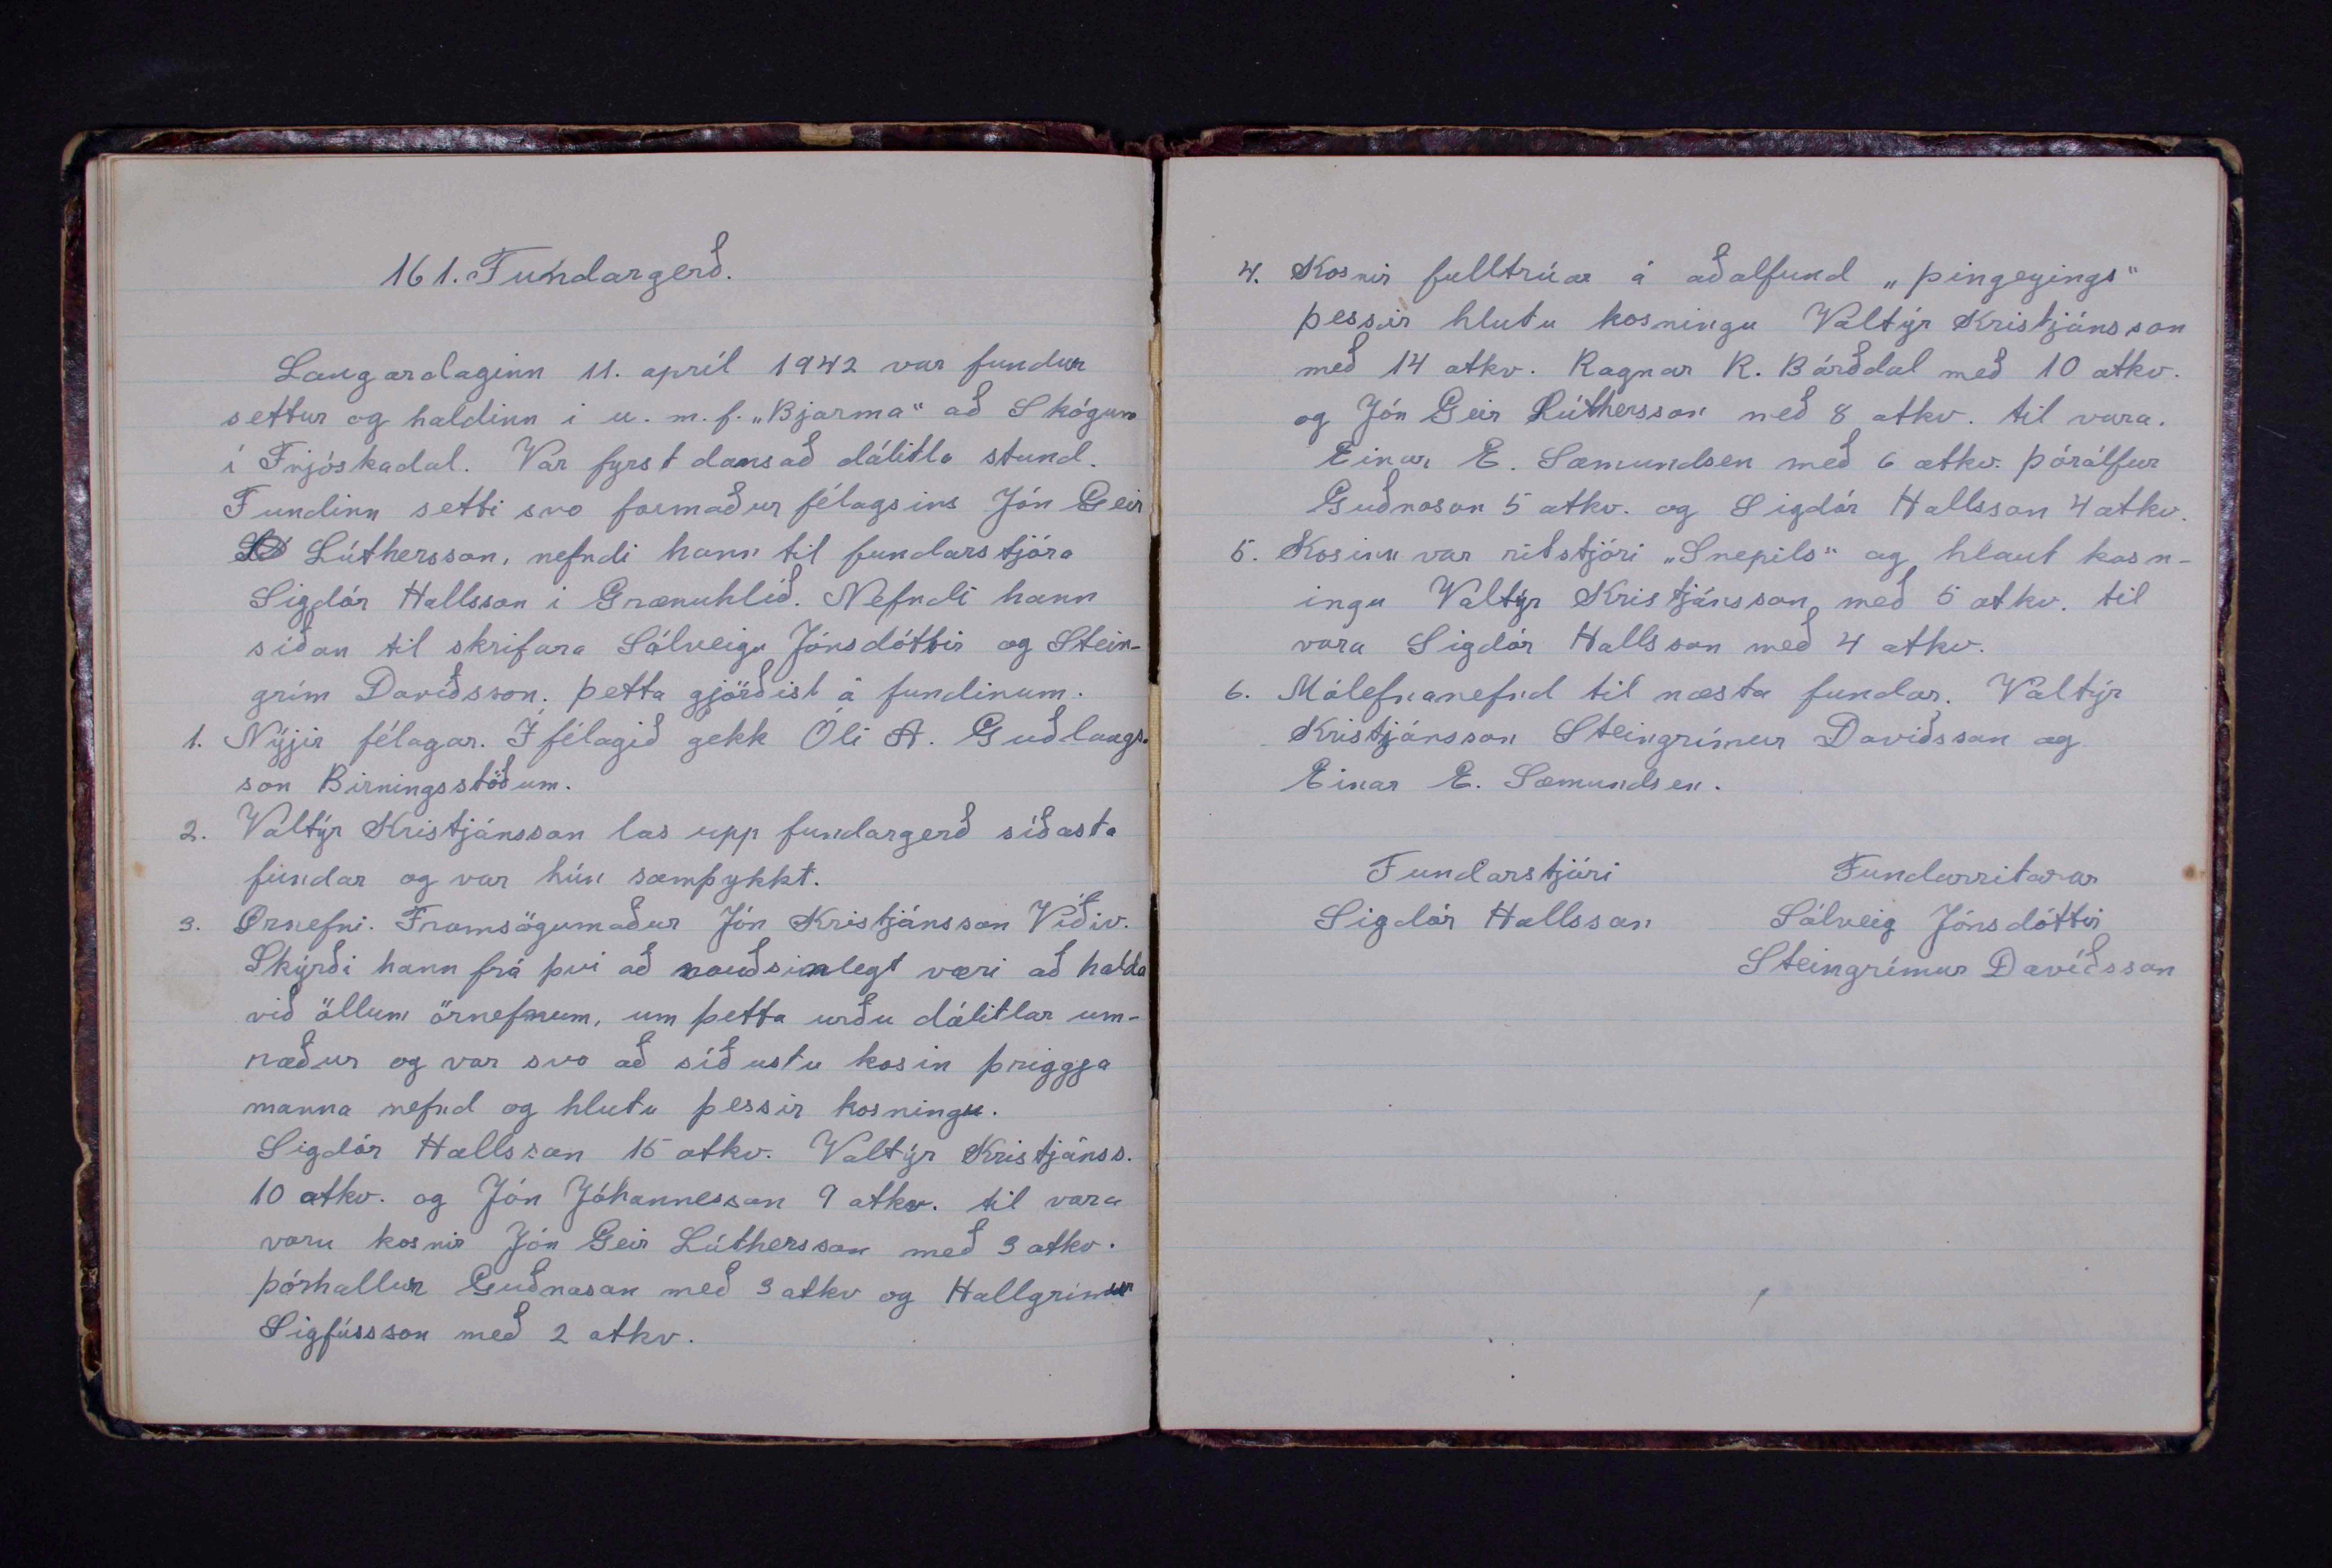 161. Fundargerð.
Laugardaginn 11. apríl 1942 var fundur
settur og haldinn i u. m. f. „Bjarma" að Skógum
í Fnjóskadal. Var fyrst dansað dálitla stund.
Fundinn setti svo formaður félagsins Jón Geir
Lúthersson, nefndi hann til fundarstjóra
Sigdór Hallsson i Grænuhlíð. Nefndi hann
síðan til skrifara Sólveigu Jónsdóttir og Stein-
grím Davíðsson. Þetta gjörðist á fundinum.
1. Nýjir félagar. Í félagið gekk Óli A. Guðlaugs-
son Birningsstöðum.
2. Valtýr Kristjánsson las upp fundargerð síðasta
fundar og var hún samþykkt.
3. Örnefni. Framsögumaður Jón Kristjánsson Víðiv.
Skýrði hann frá þvi að nauðsinlegt væri að halda
við öllum örnefnum, um þetta urðu dálitlar um-
ræður og var svo að síðustu kosin þriggja
manna nefnd og hlutu þessir kosningu.
Sigdór Hallsson 15 atkv. Valtýr Kristjánss.
10 atkv. og Jón Jóhannesson 9 atkv. til vara
voru kosnir Jón Geir Lúthersson með 3 atkv.
Þórhallur Guðnason með 3 atkv og Hallgrímur
Sigfússson með 2 atkv.
4. Kosnir fulltrúar á aðalfund „Þingeyings"
Þessir hlutu kosningu Valtýr Kristjánsson
með 14 atkv. Ragnar R. Bárðdal með 10 atkv.
og Jón Geir Lúthersson með 8 atkv. til vara.
Einar E. Sæmundsen með 6 atkv. Þórálfur
Guðnason 5 atkv. og Sigdór Hallsson 4 atkv.
5. Kosinn var ritstjóri „Snepils" og hlaut kosn-
ingu Valtýr Kristjánsson með 5 atkv. til
vara Sigdór Hallsson með 4 atkv.
6. Málefnanefnd til næsta fundar. Valtýr
Kristjánsson Steingrímur Davíðsson og
Einar E. Sæmundsen.
Fundarstjóri Fundarritarar
Sigdór Hallsson Sólveig Jónsdóttir
Steingrímur Davíðsson